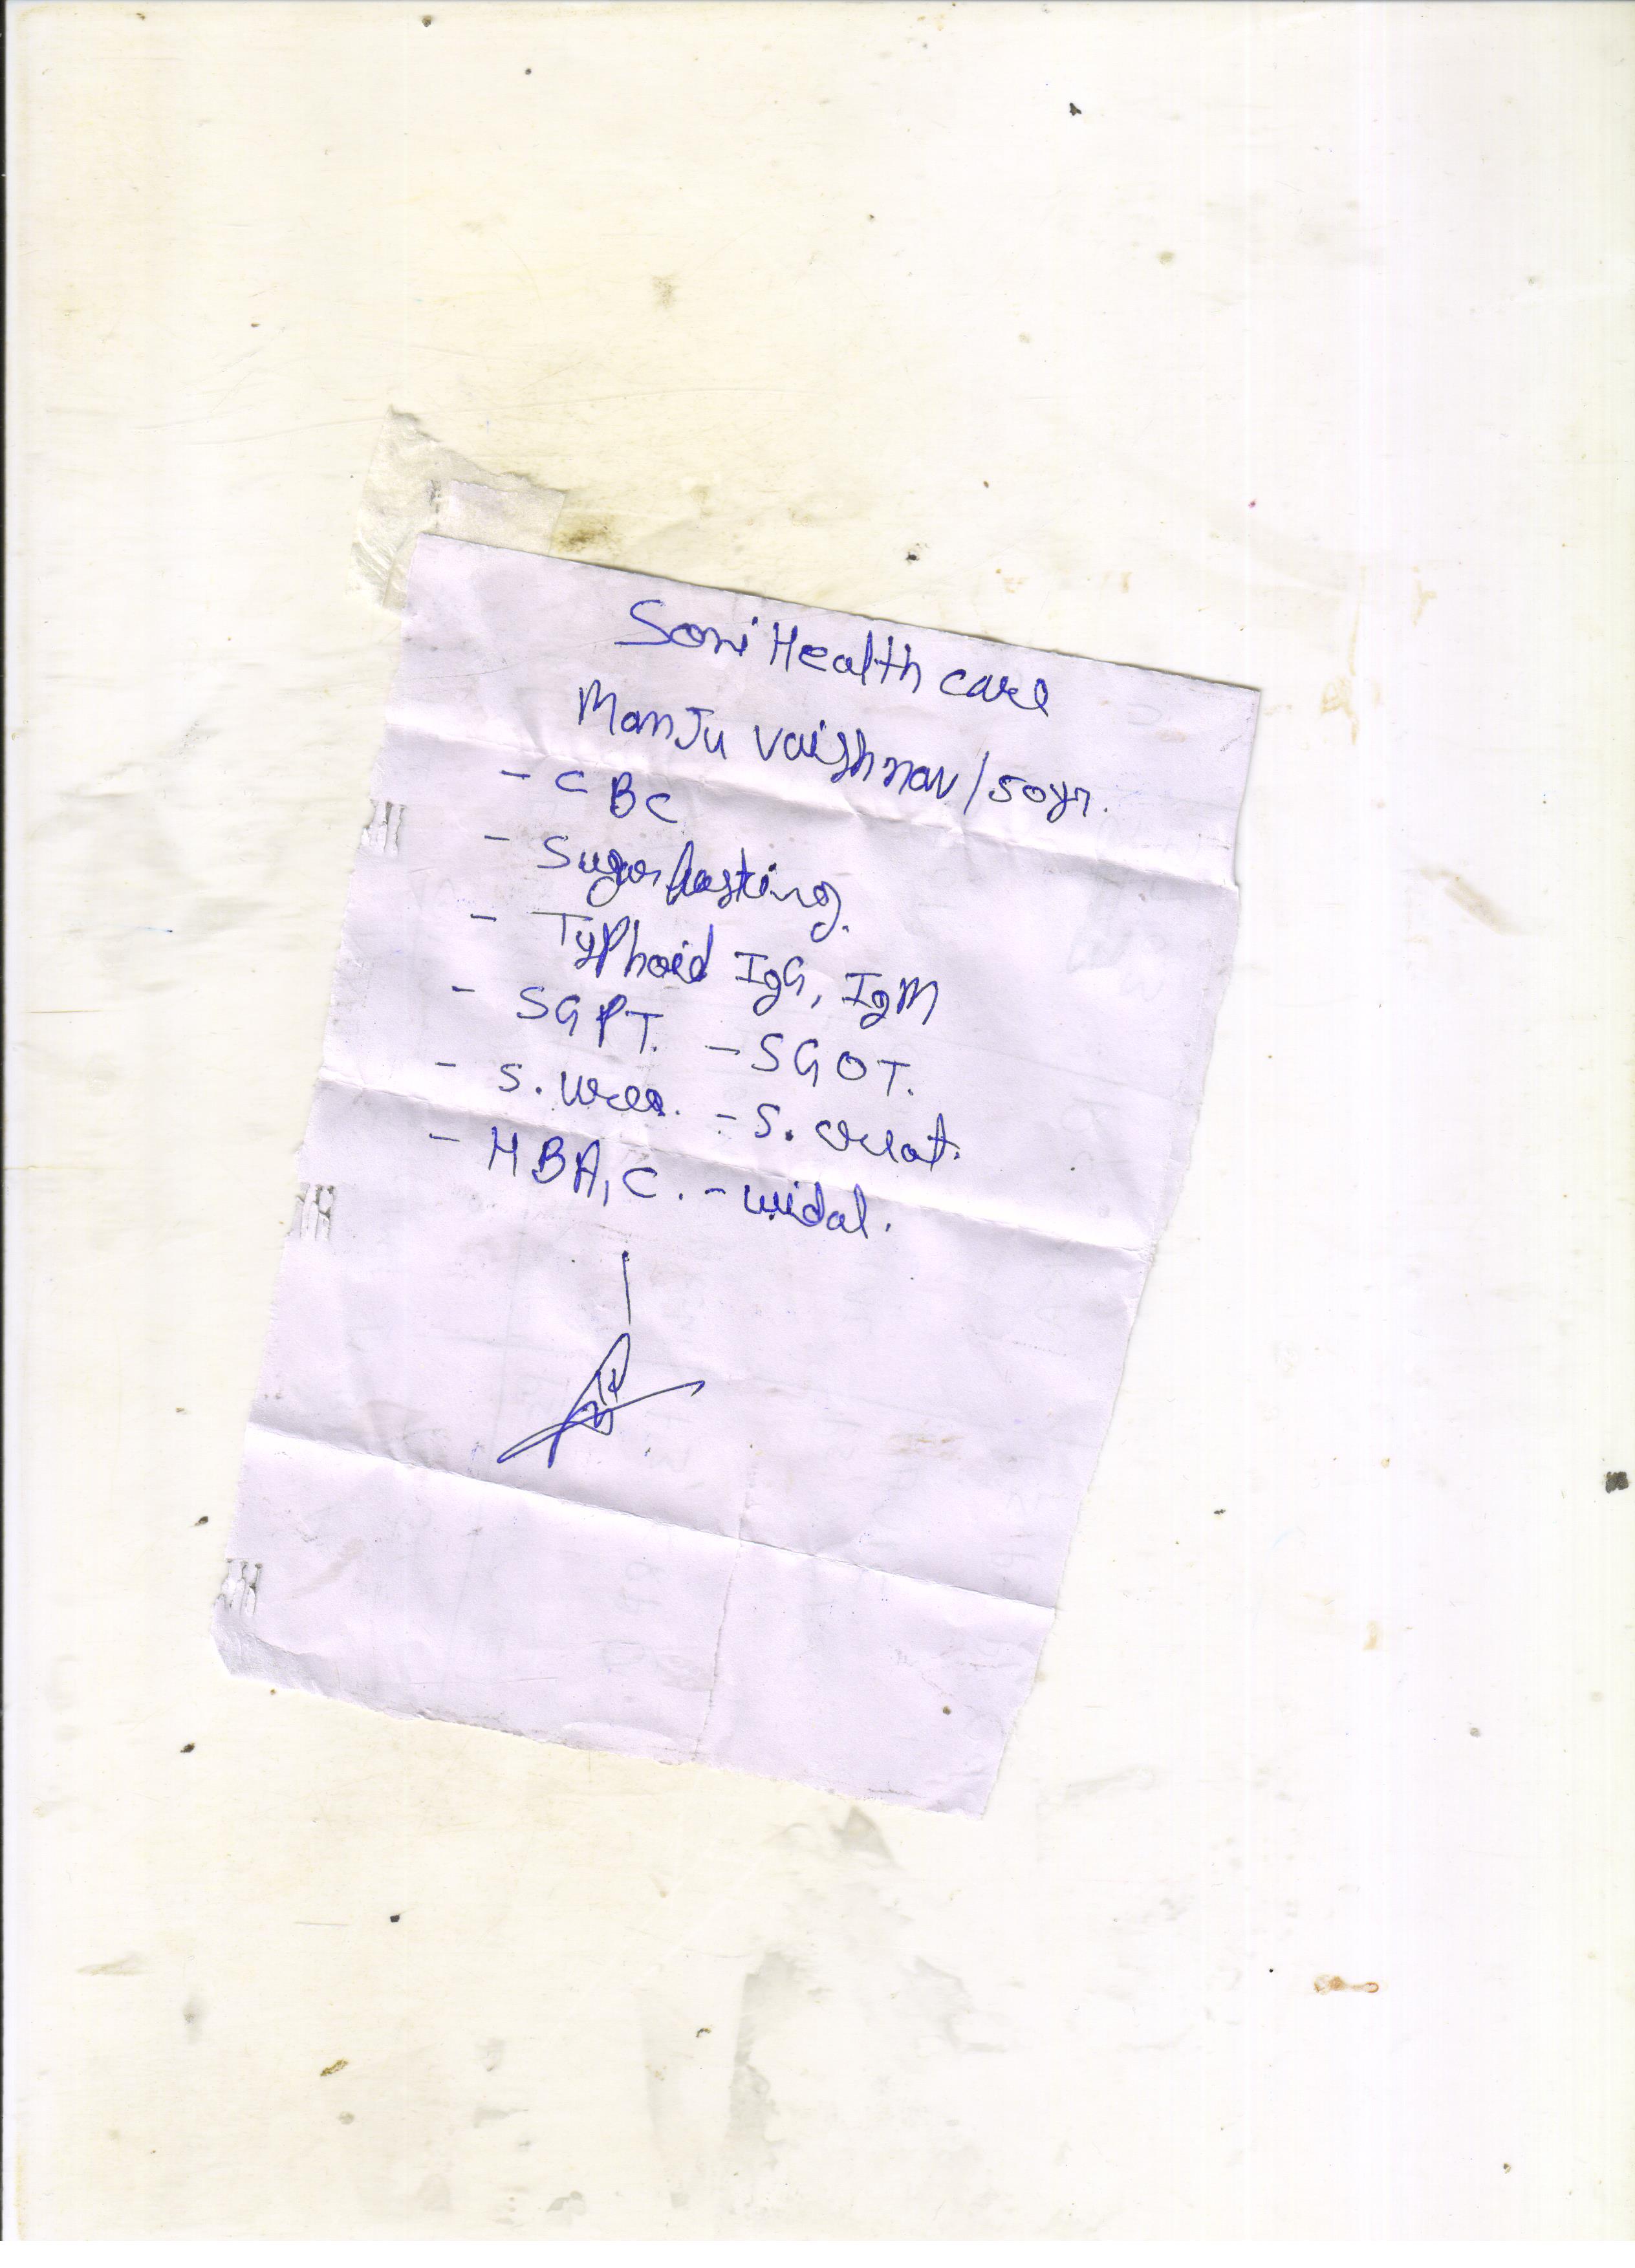 Soni Health care
ManJu vaishnav / 50yr.
- CBC
- Sugar fasting.
- Typhoid IgG, IgM
- SGPT. - SGOT.
- S. Urea. - S. creat.
- HBA1C. - widal.